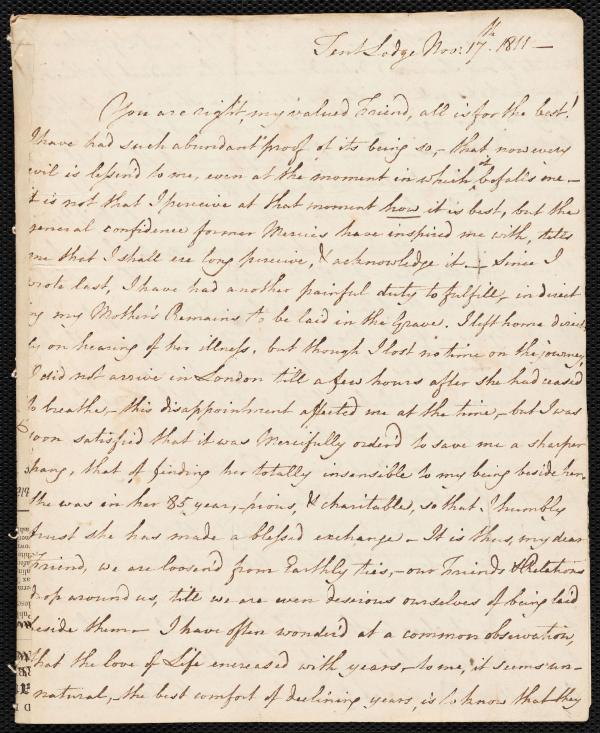 Tent Lodge Nov: 17th. 1811 —
You are right, my valued Friend, all is for the best!
I have had such abundant proof of its being so, – that now every
evil is lessend to me, even at the moment in which it befalls me –
it is not that I perceive at that moment how it is best, but the
general confidence former Mercies have inspired me with, tells
me that I shall ere long perceive, & acknowledge it – Since I
wrote last, I have had another painful duty to fulfill, in direct
ing my Mother's Remains to be laid in the Grave. I left home direct
ly on hearing of her illness, but though I lost no time on the journey,
I did not arrive in London till a few hours after she had ceased
to breathe, – this disappointment affected me at the time, – but I was
soon satisfied that it was Mercifully orderd to save me a sharper
pang, that of finding her totally insensible to my being beside her.
She was in her 85 year, – pious, & charitable, so that I humbly
trust she has made a blessed exchange – It is thus, my dear
Friend, we are loosend from Earthly ties, – our Friends & Relations
drop around us, till we are even desirous ourselves of being laid
beside them – I have often wonderd at a common observation,
that the love of Life encreased with years, – to me, it seems un-
natural, – the best comfort of declining years, is to know that they